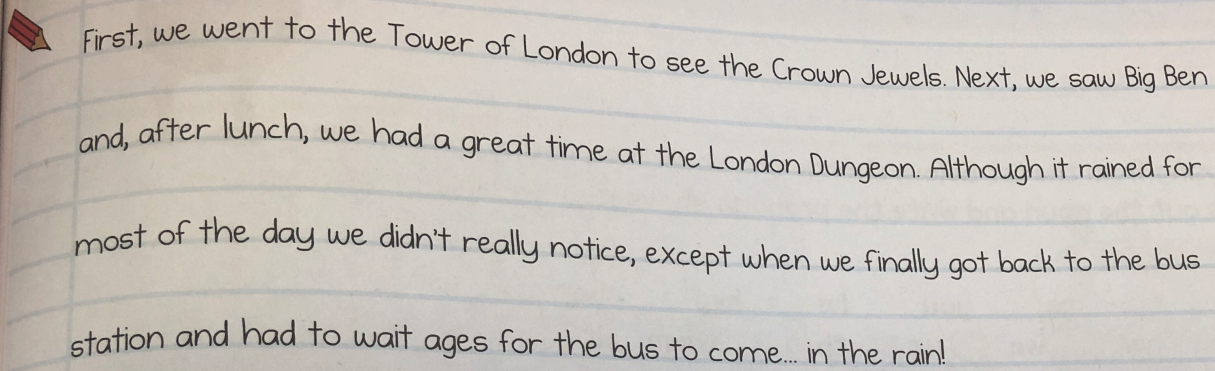 First, we went to the Tower of London to see the Crown Jewels. Next, we saw Big Ben
and, after lunch, we had a great time at the London Dungeon. Although it rained for
most of the day we didn't really notice, except when we finally got back to the bus
station and had to wait ages for the bus to come... in the rain!